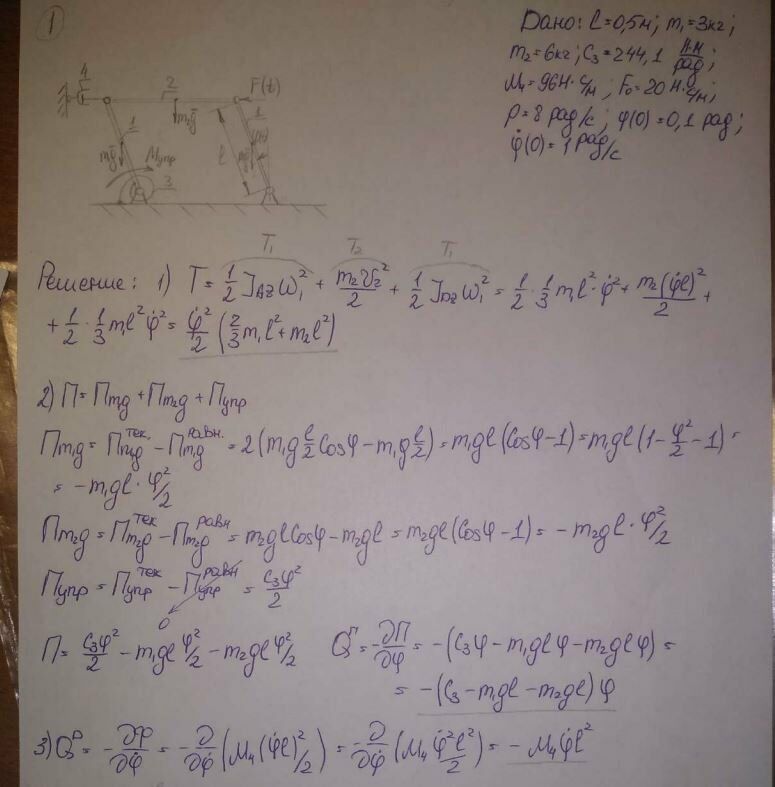 1
Дано: l=0,5м; m₁=3кг;
m₂=6кг; c₃=244,1 Н·м/рад;
μ₄=96Н·с/м; F₀=20Н·с/м;
p=8 рад/с; φ(0)=0,1 рад;
φ̇(0)=1 рад/с
4 2 F(t)
1 m₂g̅ 1
m₁g̅ Mупр l
3
T₁ T₂ T₁
Решение: 1) T= 1/2 J_AZ ω₁² + m₂V₂²/2 + 1/2 J_DZ ω₁² = 1/2 · 1/3 m₁l² · φ̇² + m₂(φ̇l)²/2 +
+ 1/2 · 1/3 m₁l² φ̇² = φ̇²/2 (2/3 m₁l² + m₂l²)
2) П = Пm₁g + Пm₂g + Пупр
Пm₁g = Пm₁g^тек. − Пm₁g^равн. = 2(m₁g l/2 cosφ − m₁g l/2) = m₁gl(cosφ−1) = m₁gl(1−φ²/2−1) =
= −m₁gl · φ²/2
Пm₂g = Пm₂g^тек − Пm₂g^равн = m₂gl cosφ − m₂gl = m₂gl(cosφ−1) = −m₂gl · φ²/2
Пупр = Пупр^тек − Пупр^равн = c₃φ²/2
0
П = c₃φ²/2 − m₁gl φ²/2 − m₂gl φ²/2 Q^П = −∂П/∂φ = −(c₃φ − m₁glφ − m₂glφ) =
= −(c₃ − m₁gl − m₂gl)φ
3) Q^Р = −∂Ф/∂φ̇ = −∂/∂φ̇ (μ₄(φ̇l)²/2) = −∂/∂φ̇ (μ₄ φ̇²l²/2) = −μ₄φ̇l²